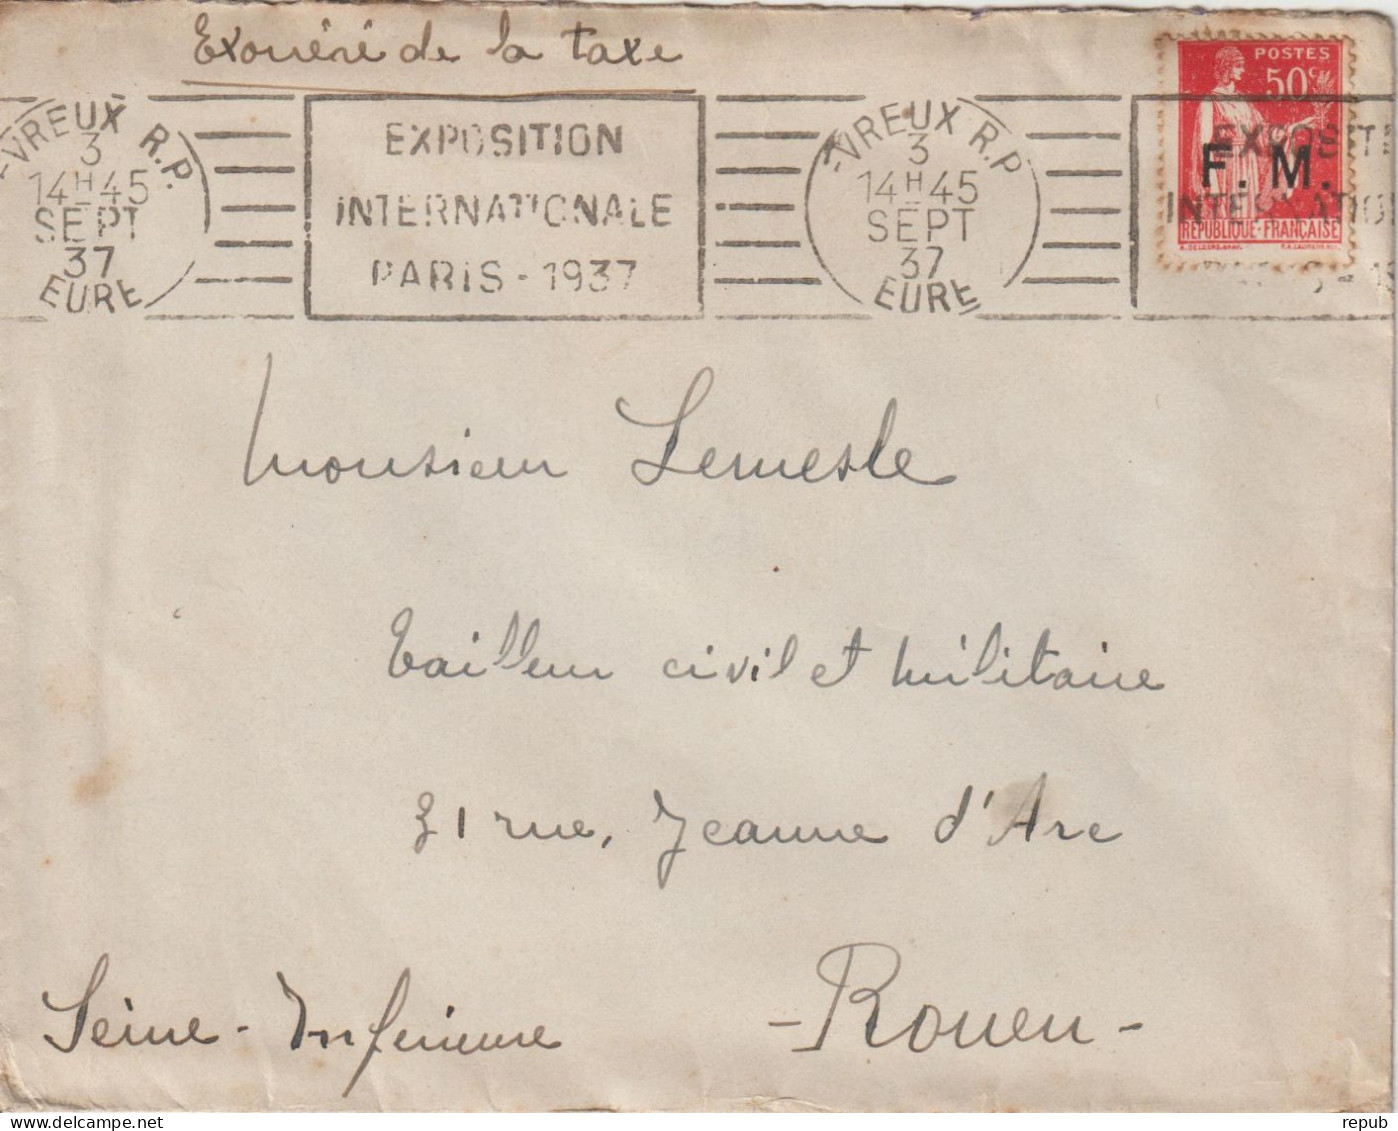 Exonéré de la taxe
EVREUX R.P.
3
14H45
SEPT
37
EURE
EXPOSITION
INTERNATIONALE
PARIS - 1937
EVREUX R.P.
3
14H45
SEPT
37
EURE
POSTES
50c
F. M.
REPUBLIQUE-FRANÇAISE
EXPOSITI
INTERNATIO
Monsieur Lemesle
Tailleur civil et militaire
31 rue, Jeanne d'Arc
- Rouen -
Seine-Inférieure
repub